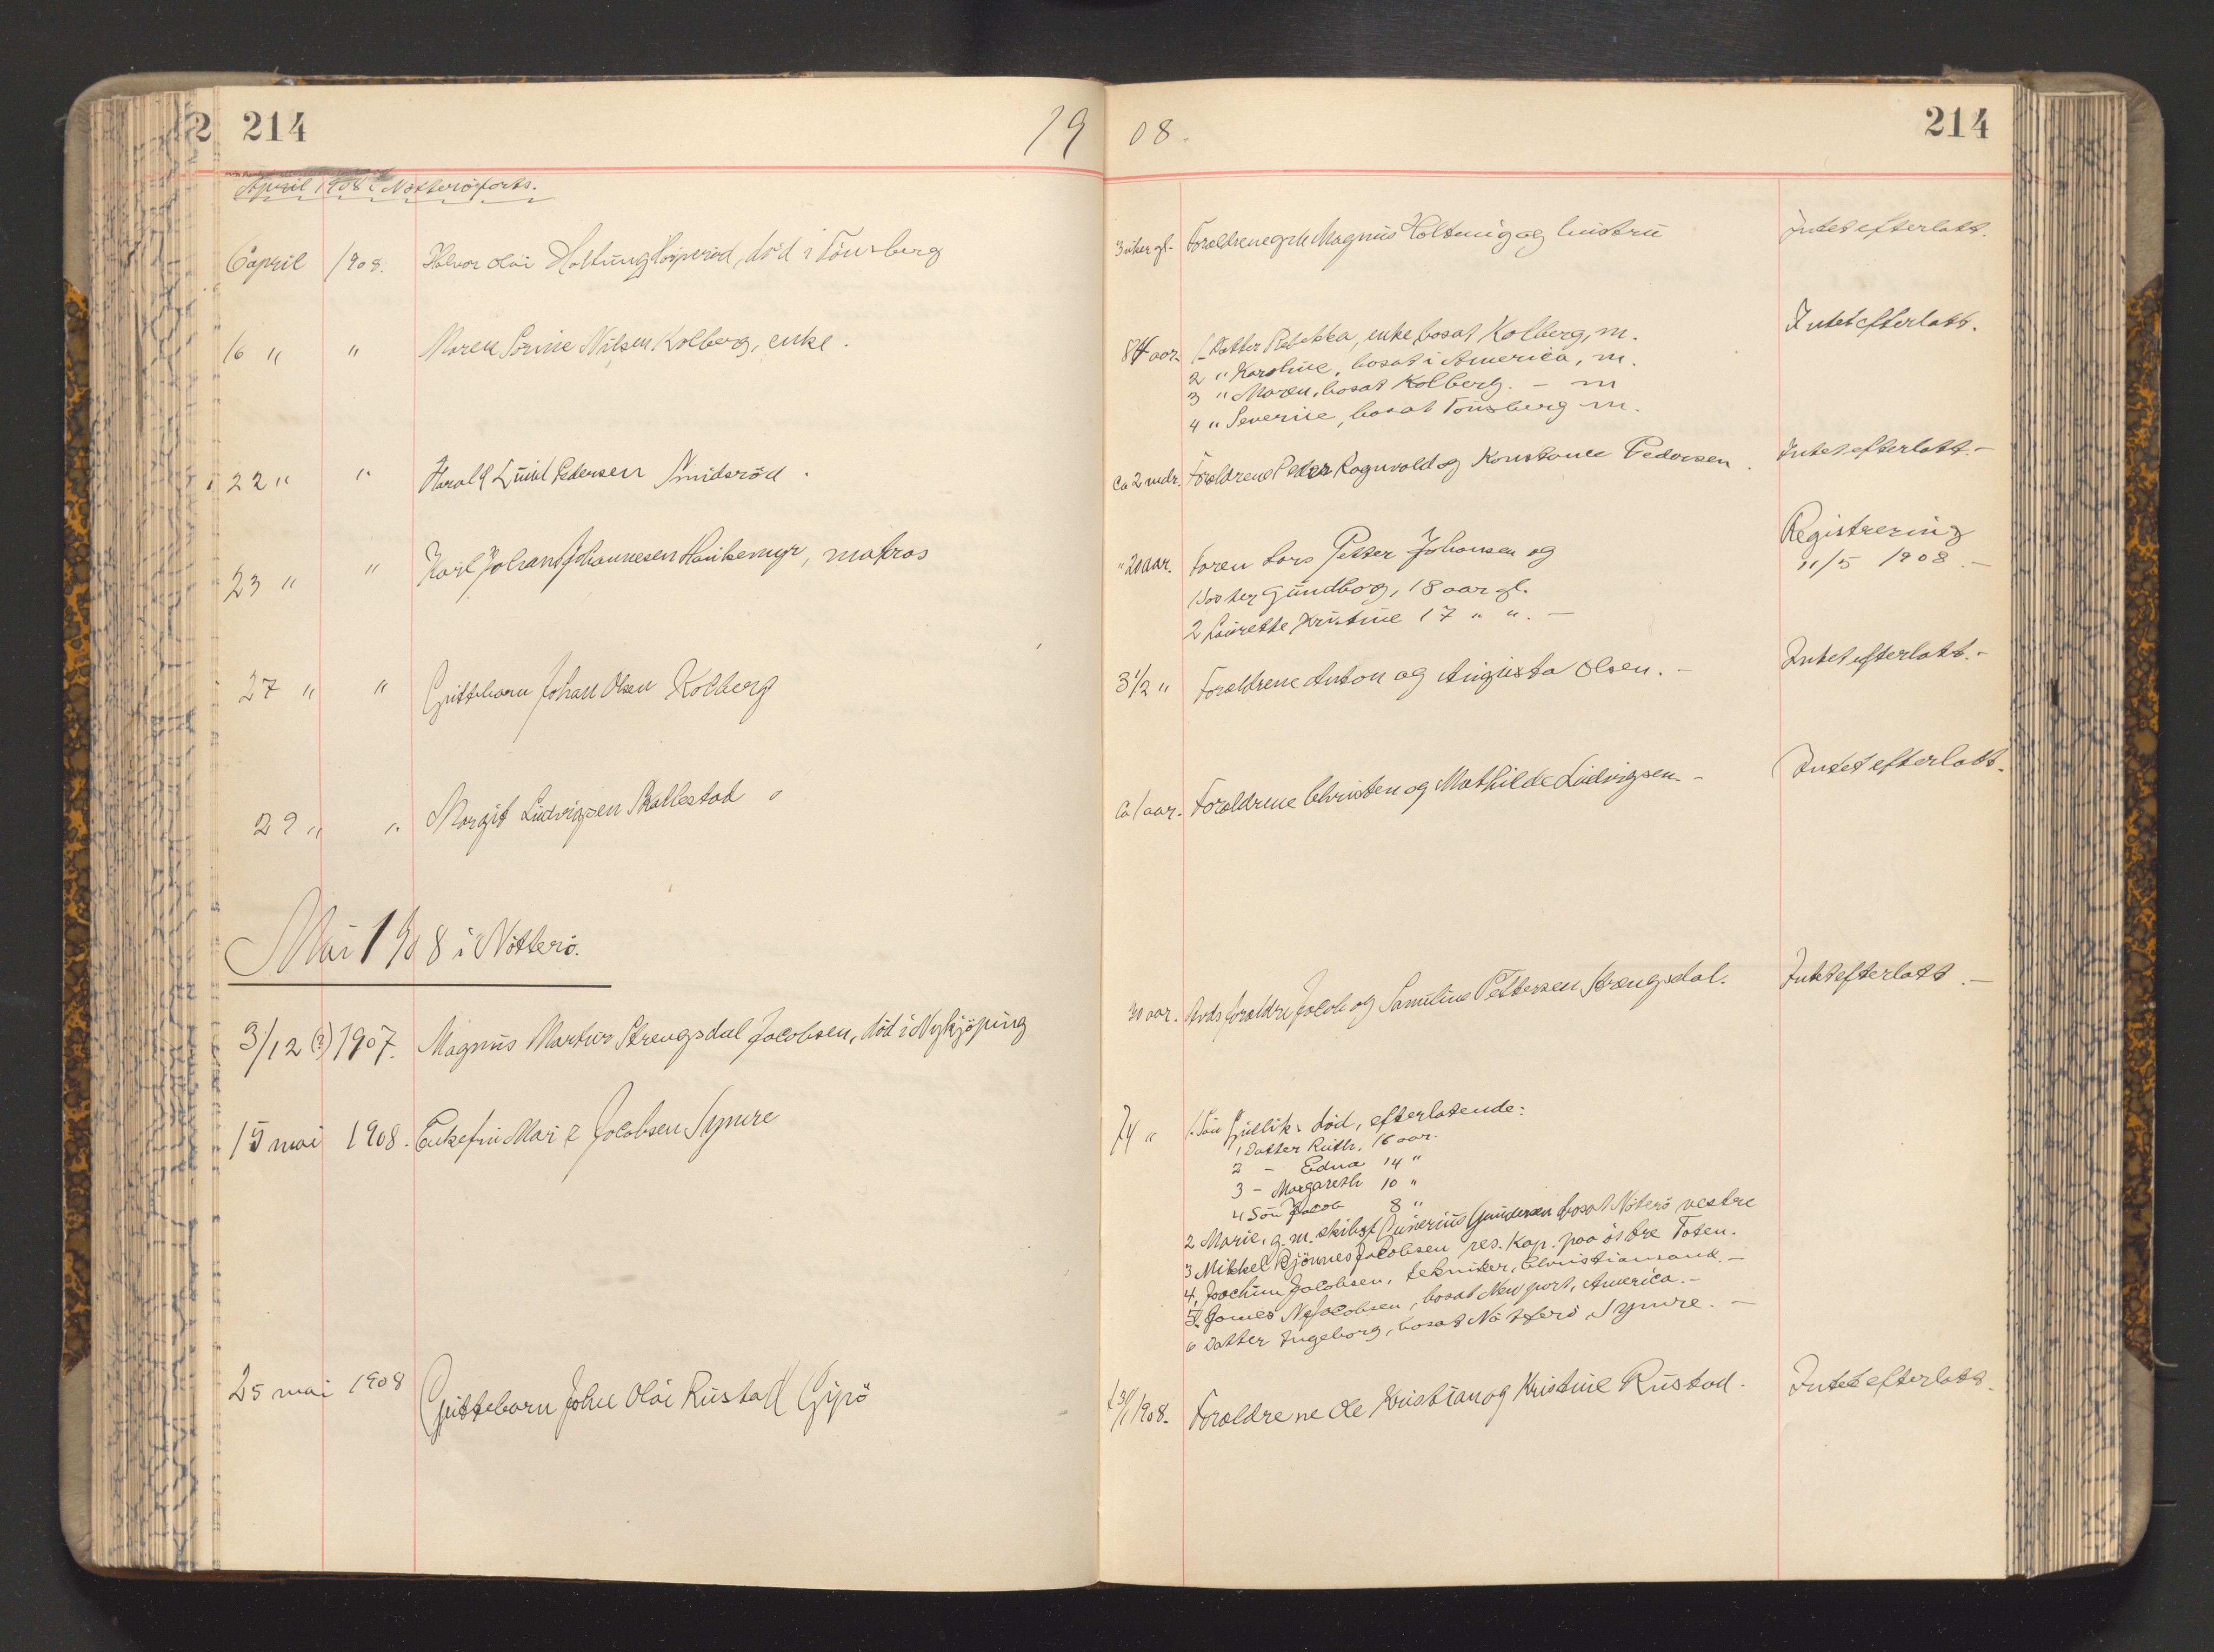 2 214
19 08.
214
April 1908 i Nötterö forts.
6 april 1908. Halvor Olai Holtung Hösperöd, död i Tönsberg
3 uker gl. Forældrene grk Magnus Holtung og hustru
Intet efterladt.
16 " " Maren Sörine Nilsen Kolberg, enke.
84 aar. 1 Datter Rebekka, enke, bosat Kolberg, m.
Intet efterlatt.
2 " Karoline, bosat i America, m.
3 " Maren, bosat Kolberg. - m
4 " Severine, bosat Tönsberg m.
22 " " Harald Pedersen Smidsröd.
Ca 2 mdr. Forældrene Peder Ragnvald og Konstance Pedersen.
Intet efterlatt.-
23 " " Karl Johan Johannesen Haukemyr, matros
" 20 aar. Faren Lars Petter Johansen og
Registrering
11/5 1908.-
1 Söster Gundborg, 18 aar gl.
2 Laurette Kristine 17 " ". -
27 " " Guttebarn Johan Olsen Kolberg
3 1/2 " Forældrene Anton og Augusta Olsen. -
Intet efterlatt.-
29 " " Margit Ludvigsen Skallestad
Ca 1 aar. Forældrene Christen og Mathilde Ludvigsen. -
Intet efterlatt.
Mai 1908 i Nötterö.
31/12 (?) 1907. Magnus Martin Strengsdal Jacobsen, död i Nykjöping
30 aar. Avds forældre Jacob og Samuline Pettersen Strengsdal.
Intet efterlatt.-
15 mai 1908. Enkefru Mari e Jacobsen Symre
74 " 1. Sön Gullik, död, efterlatende:
1 Datter Ruth, 16 aar.
2 - Edna 14 "
3 - Margareth 10 "
4 Sön Jacob 8 "
2 Marie, g. m. skibsf. Gunerius Gundersen bosat Nöterö vestre
3 Mikkel Bjönnes Jacobsen res. Kap. paa östre Toten.
4, Joachim Jacobsen, tekniker, Christiansand. -
5. James N. Jacobsen, bosat Newport, America. -
6 Datter Ingeborg, bosat Nötterö, Symre. -
25 mai 1908 Guttebarn John Olai Rustad Gipö
f 31/1 1908. Forældrene Ole Kristian og Kristine Rustad.
Intet efterlatt.